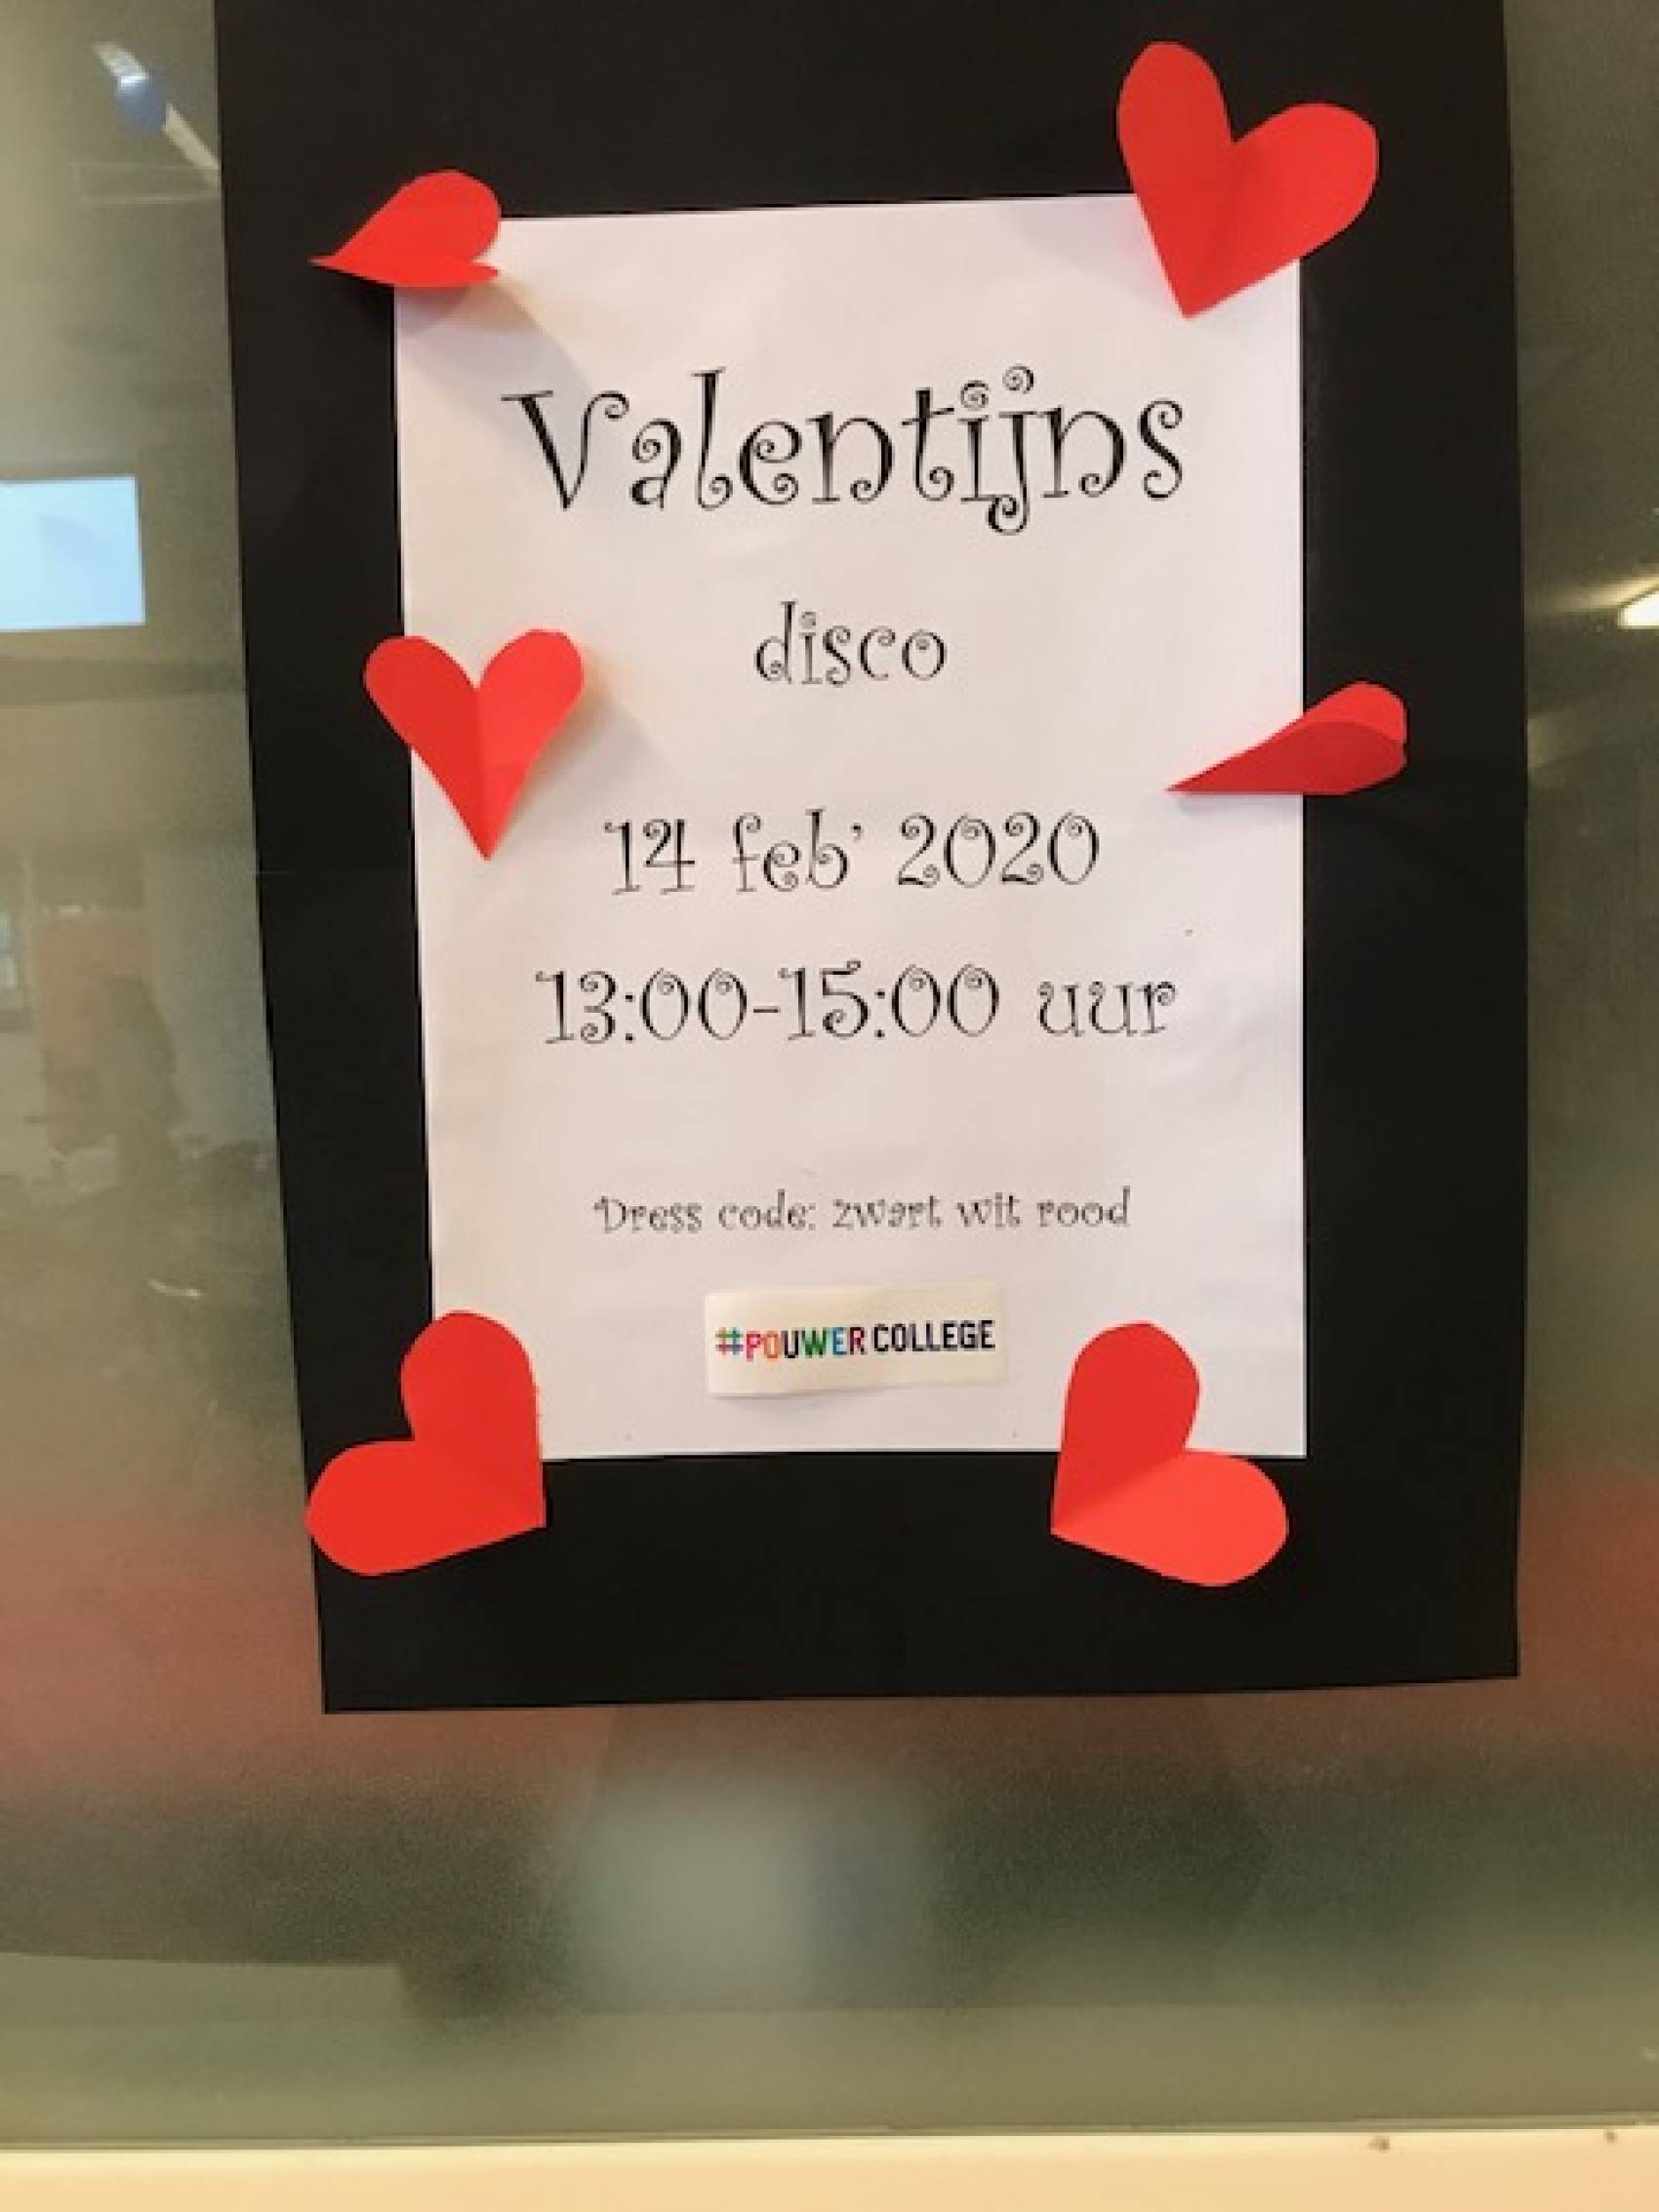 Valentijns
disco
14 feb' 2020
13:00-15:00 uur
Dress code: zwart wit rood
#POUWER COLLEGE